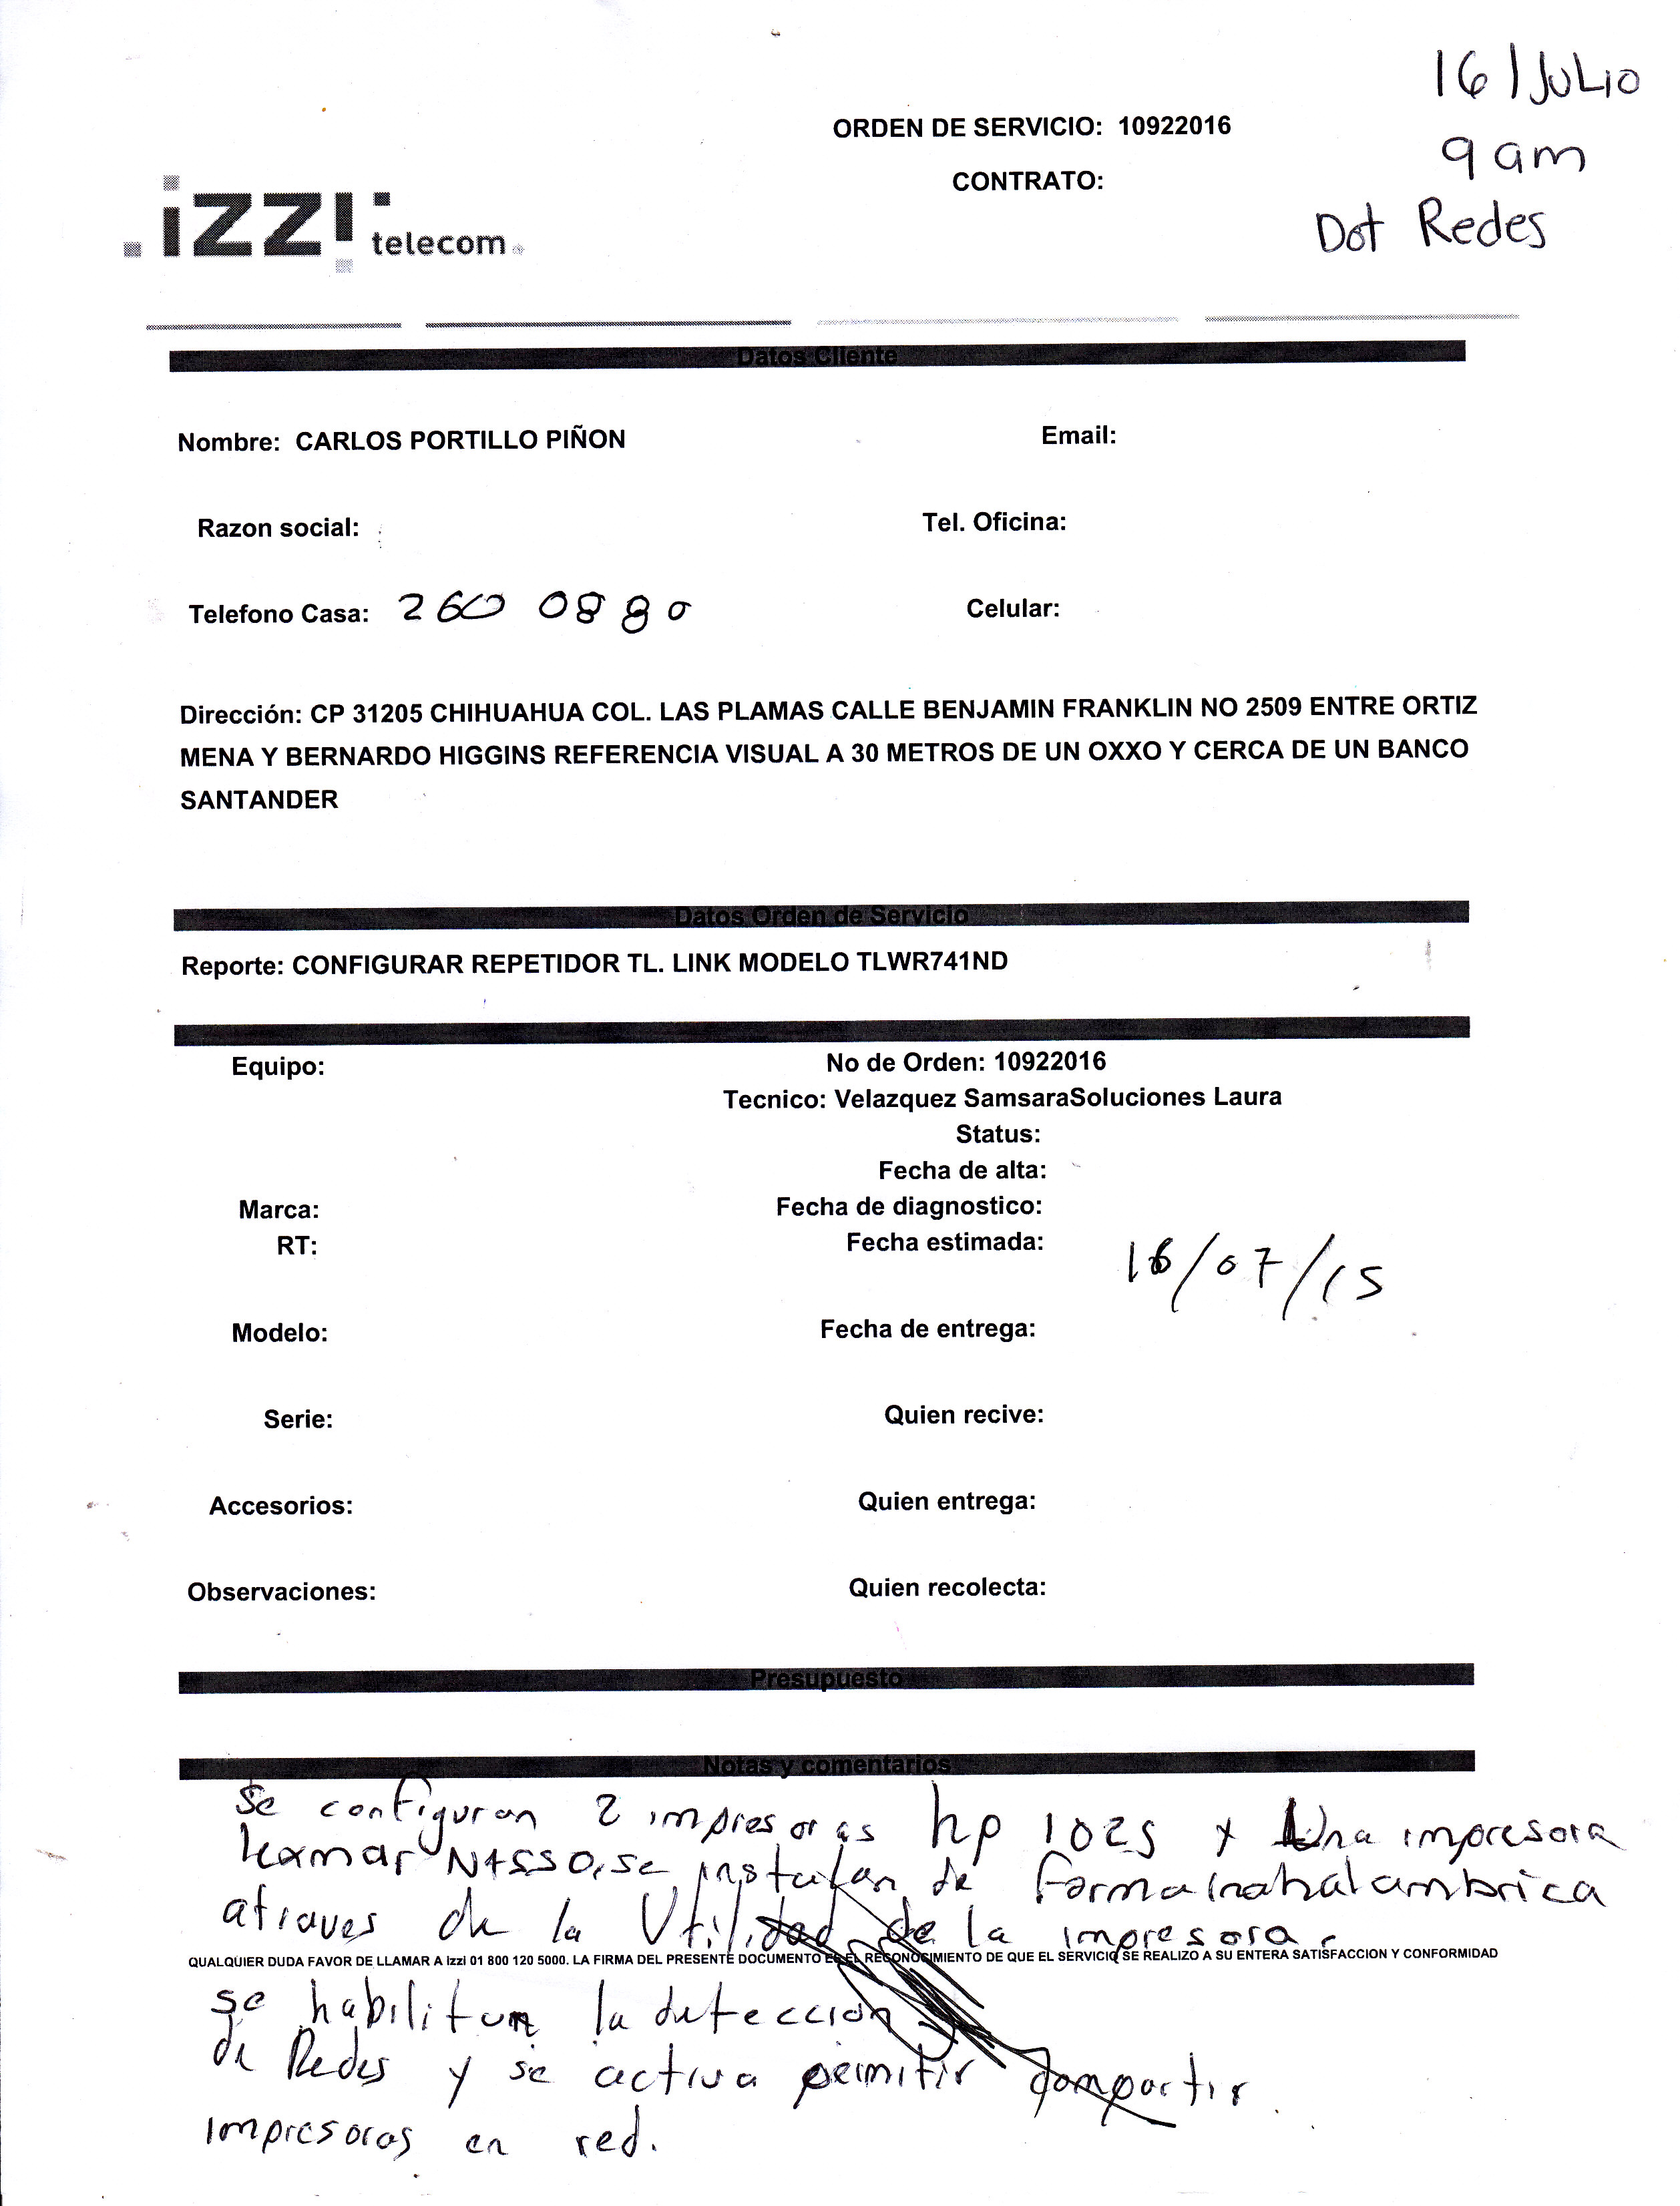 16/JULIO
9 am
Dot Redes
ORDEN DE SERVICIO: 10922016
CONTRATO:
izzi telecom
Datos Cliente
Nombre: CARLOS PORTILLO PIÑON
Email:
Razon social:
Tel. Oficina:
Telefono Casa: 260 0880
Celular:
Dirección: CP 31205 CHIHUAHUA COL. LAS PLAMAS CALLE BENJAMIN FRANKLIN NO 2509 ENTRE ORTIZ
MENA Y BERNARDO HIGGINS REFERENCIA VISUAL A 30 METROS DE UN OXXO Y CERCA DE UN BANCO
SANTANDER
Datos Orden de Servicio
Reporte: CONFIGURAR REPETIDOR TL. LINK MODELO TLWR741ND
Equipo:
No de Orden: 10922016
Tecnico: Velazquez SamsaraSoluciones Laura
Status:
Fecha de alta:
Marca:
Fecha de diagnostico:
RT:
Fecha estimada: 16/07/15
Modelo:
Fecha de entrega:
Serie:
Quien recive:
Accesorios:
Quien entrega:
Observaciones:
Quien recolecta:
Presupuesto
Notas y comentarios
Se configuran 2 impresoras hp 1025 y Una impresora
lexmar se instalan de forma
atraves de la Utilidad de la impresora.
QUALQUIER DUDA FAVOR DE LLAMAR A izzi 01 800 120 5000. LA FIRMA DEL PRESENTE DOCUMENTO ES EL RECONOCIMIENTO DE QUE EL SERVICIO SE REALIZO A SU ENTERA SATISFACCION Y CONFORMIDAD
se habilitan la deteccion
de Redes y se activa permitir compartir.
impresoras en red.